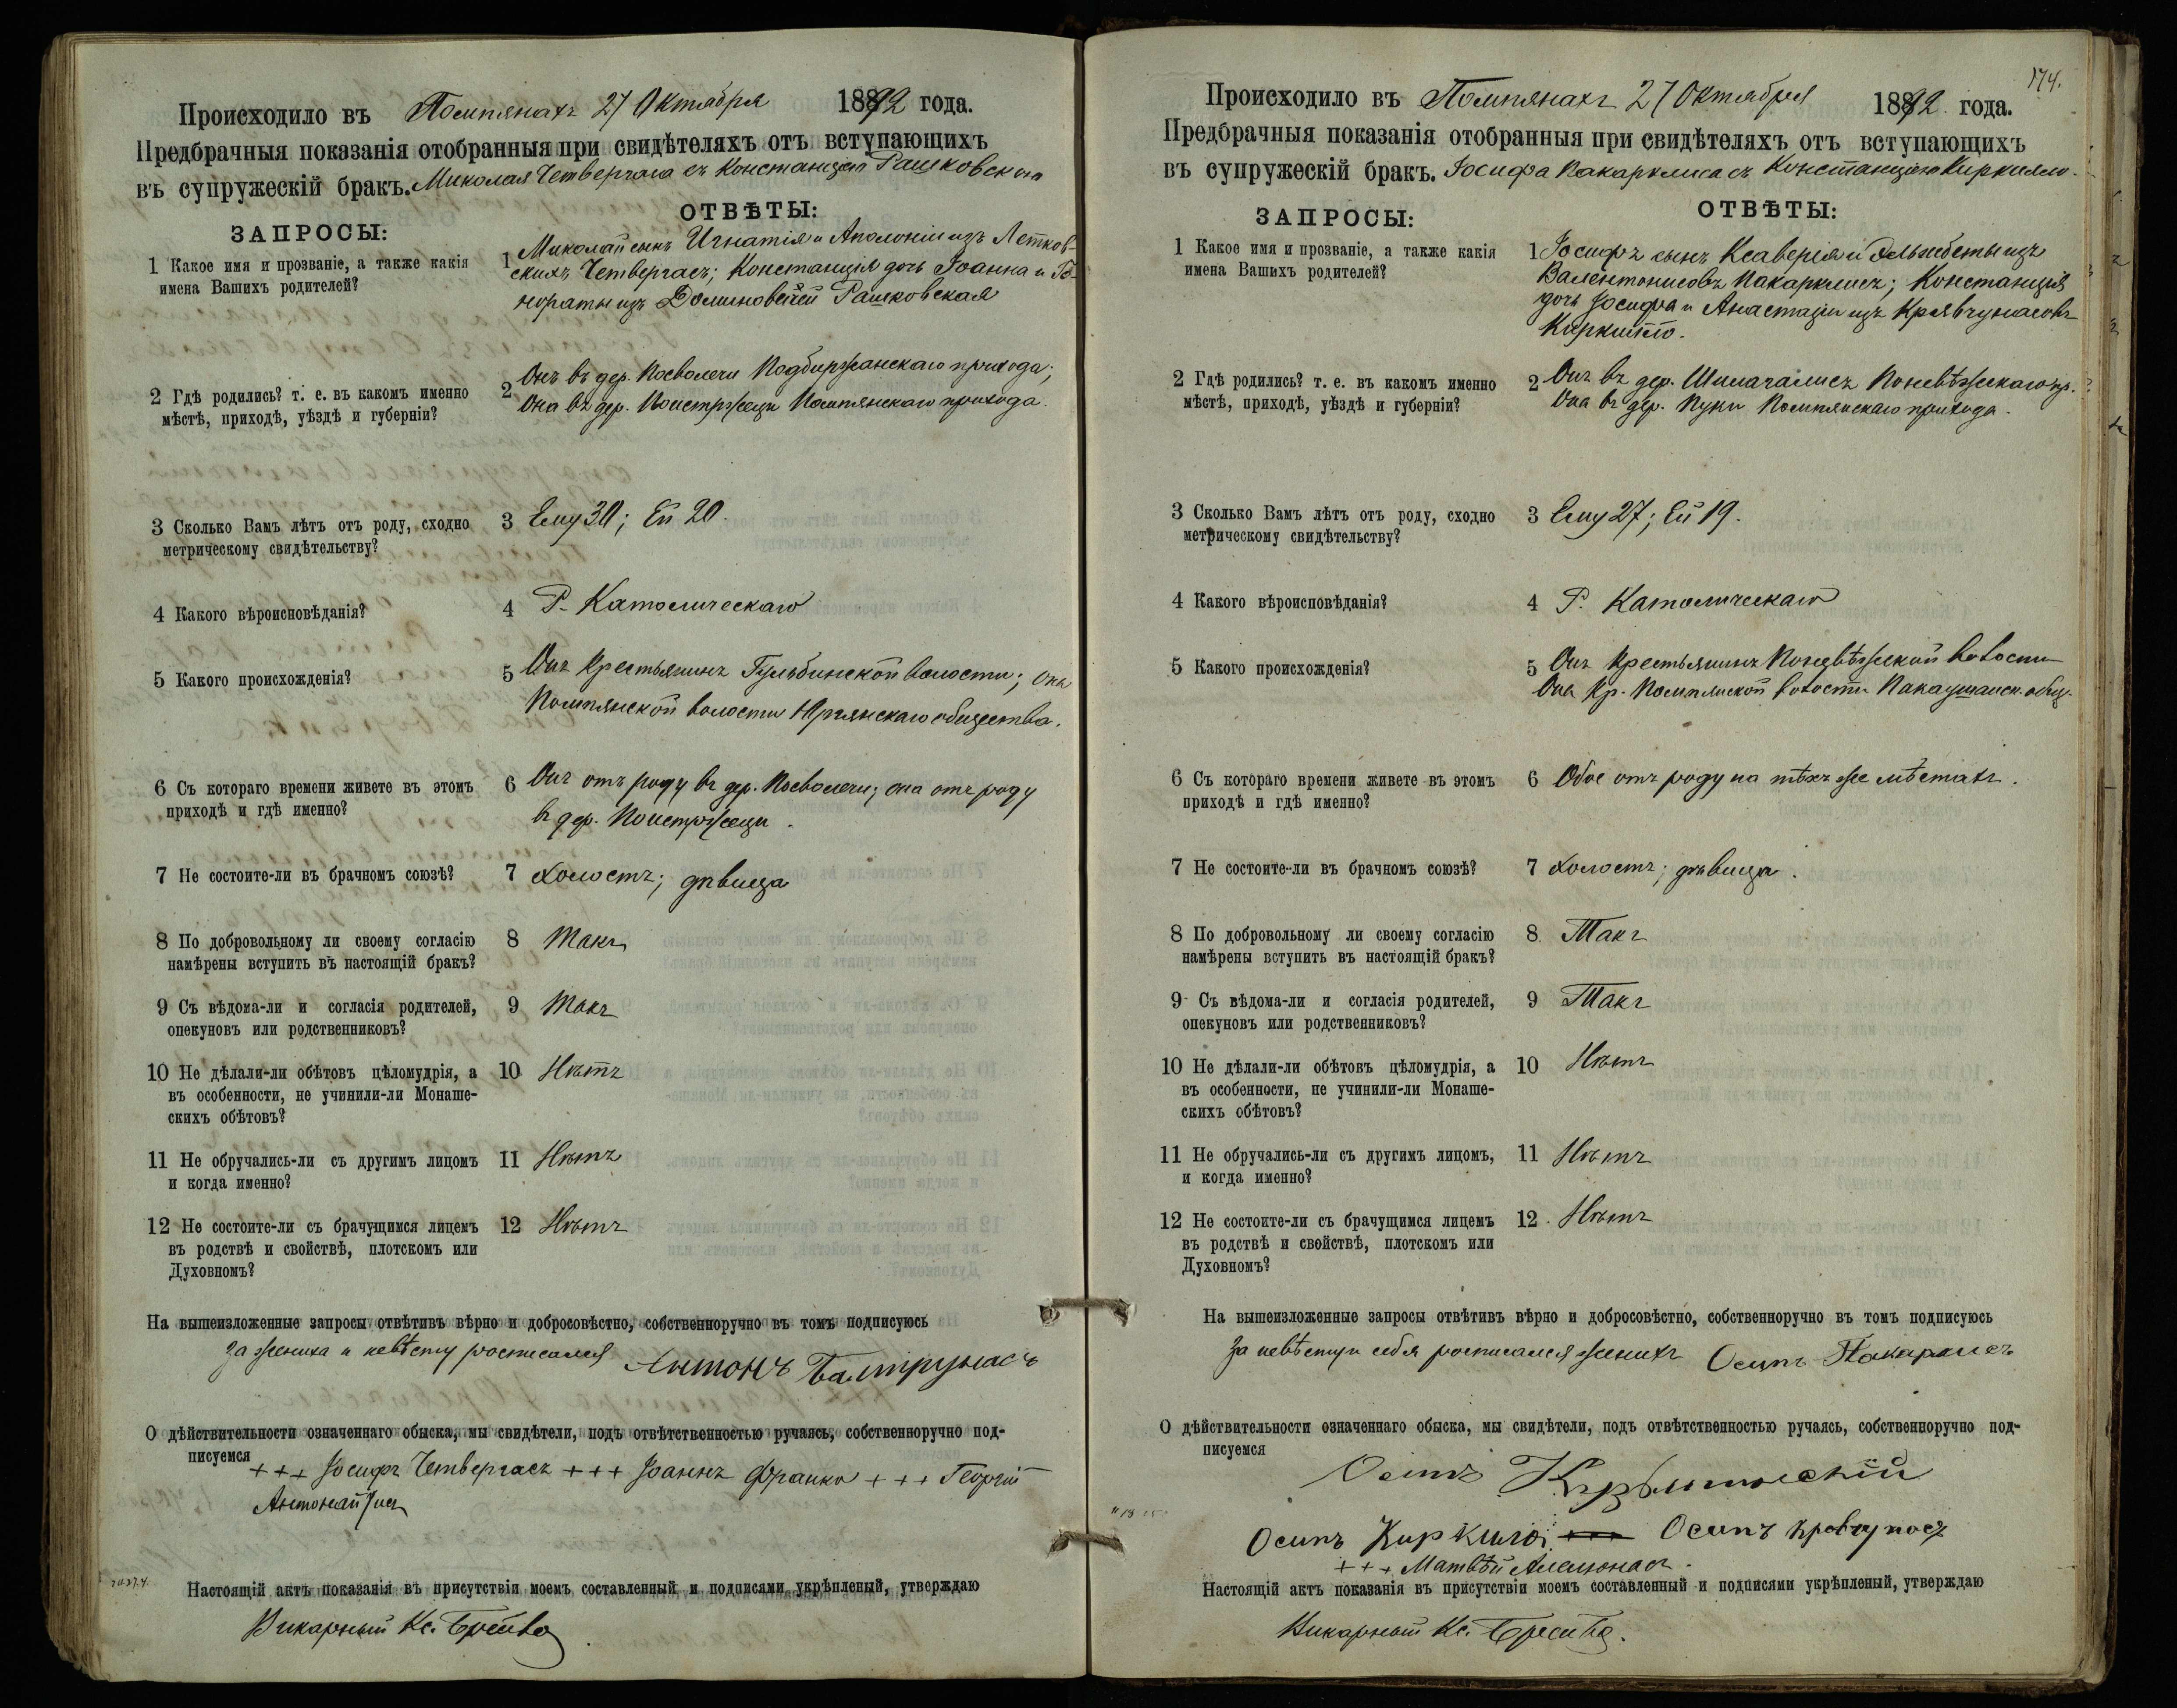 Происходило въ Помпянахъ 27 Октября 1892 года.
Предбрачныя показанія отобранныя при свидѣтеляхъ отъ вступающихъ
въ супружескій бракъ. Миколая Четвергаса съ Констанціею Рашковскою
ЗАПРОСЫ:
ОТВѢТЫ:
1 Какое имя и прозваніе, а также какія
имена Вашихъ родителей?
1 Миколай сынъ Игнатія и Аполоніи изъ Летков-
скихъ Четвергасъ; Констанція дочь Іоанна и Го-
нораты изъ Рашковская
2 Гдѣ родились? т. е. въ какомъ именно
мѣстѣ, приходѣ, уѣздѣ и губерніи?
2 Онъ въ дер. Посволечи Подбиржанскаго прихода;
Она въ дер. Поистржеци Помпянскаго прихода.
3 Сколько Вамъ лѣтъ отъ роду, сходно
метрическому свидѣтельству?
3 Ему 30; Ей 20.
4 Какого вѣроисповѣданія?
4 Р. Католическаго
5 Какого происхожденія?
5 Онъ крестьянинъ Гульбинской волости; она
Помпянской волости общества.
6 Съ котораго времени живете въ этомъ
приходѣ и гдѣ именно?
6 Онъ отъ роду въ дер. Посволечи; она отъ роду
въ дер. Поистржеци.
7 Не состоите-ли въ брачномъ союзѣ?
7 Холостъ; дѣвица
8 По добровольному ли своему согласію
намѣрены вступить въ настоящій бракъ?
8 Такъ
9 Съ вѣдома-ли и согласія родителей,
опекуновъ или родственниковъ?
9 Такъ
10 Не дѣлали-ли обѣтовъ цѣломудрія, а
въ особенности, не учинили-ли Монаше-
скихъ обѣтовъ?
10 Нѣтъ
11 Не обручались-ли съ другимъ лицомъ
и когда именно?
11 Нѣтъ
12 Не состоите-ли съ брачущимся лицемъ
въ родствѣ и свойствѣ, плотскомъ или
Духовномъ?
12 Нѣтъ
На вышеизложенные запросы отвѣтивъ вѣрно и добросовѣстно, собственноручно въ томъ подписуюсь
За жениха и невѣсту росписался Антонъ Балтрунасъ
О дѣйствительности означеннаго обыска, мы свидѣтели, подъ отвѣтственностью ручаясь, собственноручно под-
писуемся +++ Іосифъ Четвергасъ +++ Іоаннъ Франко +++ Георгій
Настоящій актъ показанія въ присутствіи моемъ составленный и подписями укрѣпленый, утверждаю
Викарный Кс.
174.
Происходило въ Помпянахъ 27 Октября 1892 года.
Предбрачныя показанія отобранныя при свидѣтеляхъ отъ вступающихъ
въ супружескій бракъ. Іосифа Пакарклиса съ Констанціею Киркилло.
ЗАПРОСЫ:
ОТВѢТЫ:
1 Какое имя и прозваніе, а также какія
имена Вашихъ родителей?
1 Іосифъ сынъ Ксаверія и Эльжбеты изъ
Валентонисовъ Пакарклисъ; Констанція
дочь Іосифа и Анастазіи изъ Крявчунасовъ
Киркилло.
2 Гдѣ родились? т. е. въ какомъ именно
мѣстѣ, приходѣ, уѣздѣ и губерніи?
2 Онъ въ дер. Поневѣжскаго пр.
Она въ дер. Пуки Помпянскаго прихода.
3 Сколько Вамъ лѣтъ отъ роду, сходно
метрическому свидѣтельству?
3 Ему 27; Ей 19.
4 Какого вѣроисповѣданія?
4 Р. Католическаго
5 Какого происхожденія?
5 Онъ крестьянинъ Поневѣжской волости
Она кр. Помпянской волости общ.
6 Съ котораго времени живете въ этомъ
приходѣ и гдѣ именно?
6 Обое отъ роду на тѣхъ же мѣстахъ.
7 Не состоите-ли въ брачномъ союзѣ?
7 Холостъ; дѣвица.
8 По добровольному ли своему согласію
намѣрены вступить въ настоящій бракъ?
8. Такъ
9 Съ вѣдома-ли и согласія родителей,
опекуновъ или родственниковъ?
9 Такъ
10 Не дѣлали-ли обѣтовъ цѣломудрія, а
въ особенности, не учинили-ли Монаше-
скихъ обѣтовъ?
10 Нѣтъ
11 Не обручались-ли съ другимъ лицомъ,
и когда именно?
11 Нѣтъ
12 Не состоите-ли съ брачущимся лицемъ
въ родствѣ и свойствѣ, плотскомъ или
Духовномъ?
12. Нѣтъ
На вышеизложенные запросы отвѣтивъ вѣрно и добросовѣстно, собственноручно въ томъ подписуюсь
За невѣсту и себя росписался женихъ Осипъ Пакарклисъ
О дѣйствительности означеннаго обыска, мы свидѣтели, подъ отвѣтственностью ручаясь, собственноручно под-
писуемся
Осипъ
Осипъ Киркило Осипъ Кревчунасъ
+++ Матвѣй
Настоящій актъ показанія въ присутствіи моемъ составленный и подписями укрѣпленый, утверждаю
Викарный Кс.